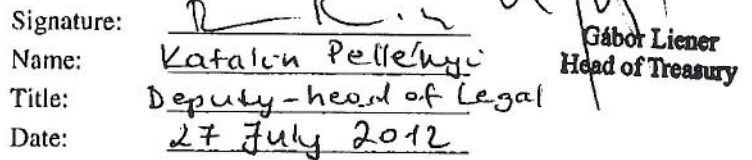 Signature:
Name: Katalin Pellényi
Title: Deputy-head of Legal
Date: 27 July 2012
Gábor Liener
Head of Treasury